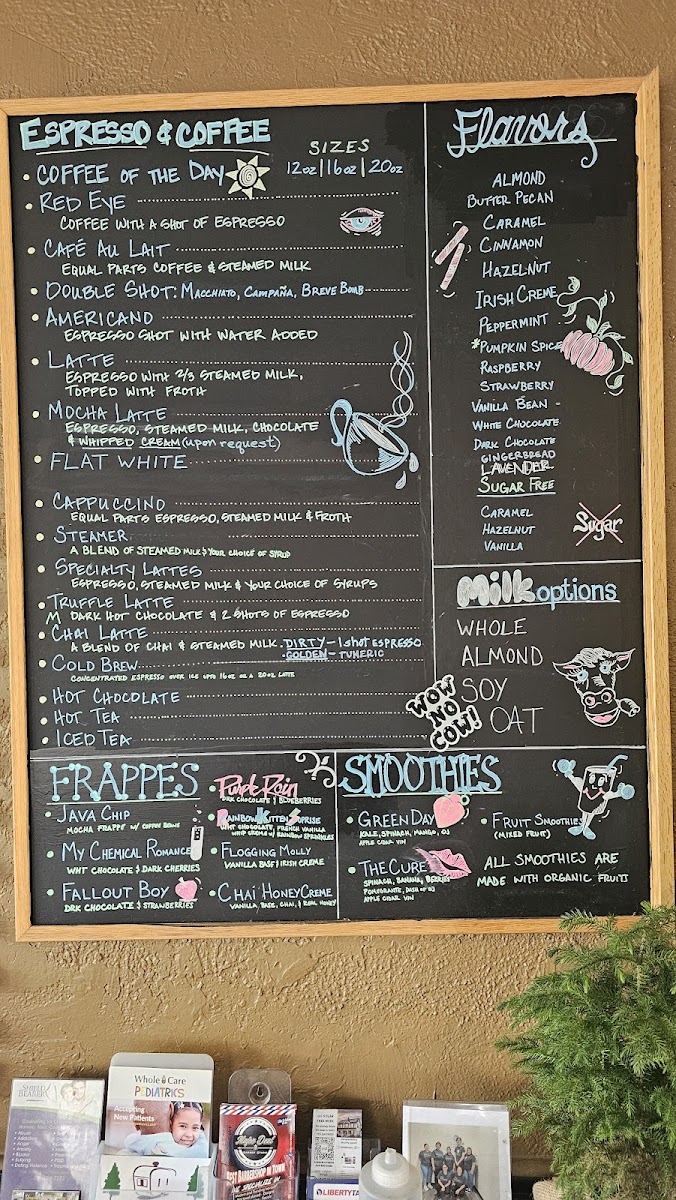 ESPRESSO & COFFEE
SIZES
12oz | 16oz | 20oz
• COFFEE OF THE DAY
• RED EYE
COFFEE WITH A SHOT OF ESPRESSO
• CAFÉ AU LAIT
EQUAL PARTS COFFEE & STEAMED MILK
• DOUBLE SHOT: MACCHIATO, CAMPAÑA, BREVE BOMB
• AMERICANO
ESPRESSO SHOT WITH WATER ADDED
• LATTE
ESPRESSO WITH 2/3 STEAMED MILK,
TOPPED WITH FROTH
• MOCHA LATTE
ESPRESSO, STEAMED MILK, CHOCOLATE
& WHIPPED CREAM (upon request)
• FLAT WHITE
• CAPPUCCINO
EQUAL PARTS ESPRESSO, STEAMED MILK & FROTH
• STEAMER
A BLEND OF STEAMED MILK & YOUR CHOICE OF SYRUP
• SPECIALTY LATTES
ESPRESSO, STEAMED MILK & YOUR CHOICE OF SYRUPS
• TRUFFLE LATTE
M DARK HOT CHOCOLATE & 2 SHOTS OF ESPRESSO
• CHAI LATTE
A BLEND OF CHAI & STEAMED MILK. DIRTY - 1 shot ESPRESSO
GOLDEN - TUMERIC
• COLD BREW
CONCENTRATED ESPRESSO OVER ICE UPTO 16 OZ OR A 20OZ LATTE
• HOT CHOCOLATE
• HOT TEA
• ICED TEA
Flavors
ALMOND
BUTTER PECAN
CARAMEL
CINNAMON
HAZELNUT
IRISH CREME
PEPPERMINT
*PUMPKIN SPICE
RASPBERRY
STRAWBERRY
VANILLA BEAN -
WHITE CHOCOLATE
DARK CHOCOLATE
GINGERBREAD
LAVENDER
SUGAR FREE
CARAMEL
HAZELNUT
VANILLA
Sugar
Milk options
WHOLE
ALMOND
SOY
OAT
WOW
NO
COW!
FRAPPES
• JAVA CHIP
MOCHA FRAPPE W/ COFFEE BEANS
• MY CHEMICAL ROMANCE
WHT CHOCOLATE & DARK CHERRIES
• FALLOUT BOY
DRK CHOCOLATE & STRAWBERRIES
• Purple Rain
DRK CHOCOLATE & BLUEBERRIES
• RAINBOW KITTEN SURPRISE
WHT CHOCOLATE, FRENCH VANILLA
WHIP CREME W/ RAINBOW SPRINKLES
• FLOGGING MOLLY
VANILLA BASE & IRISH CREME
• CHAI HONEY CREME
VANILLA, BASE, CHAI, & REAL HONEY
SMOOTHIES
• GREEN DAY
KALE, SPINACH, MANGO, OJ
APPLE CIDAR VIN
• THE CURE
SPINACH, BANANA, BERRIES
POMEGRANITE, DASH OF OJ
APPLE CIDAR VIN
• FRUIT SMOOTHIES
(MIXED FRUIT)
ALL SMOOTHIES ARE
MADE WITH ORGANIC FRUITS
SHIELD BEARER
Whole Care
PEDIATRICS
Accepting
New Patients
BEST BARBERSHOP IN TOWN
WE SPECIALIZE IN
LIBERTY TAX